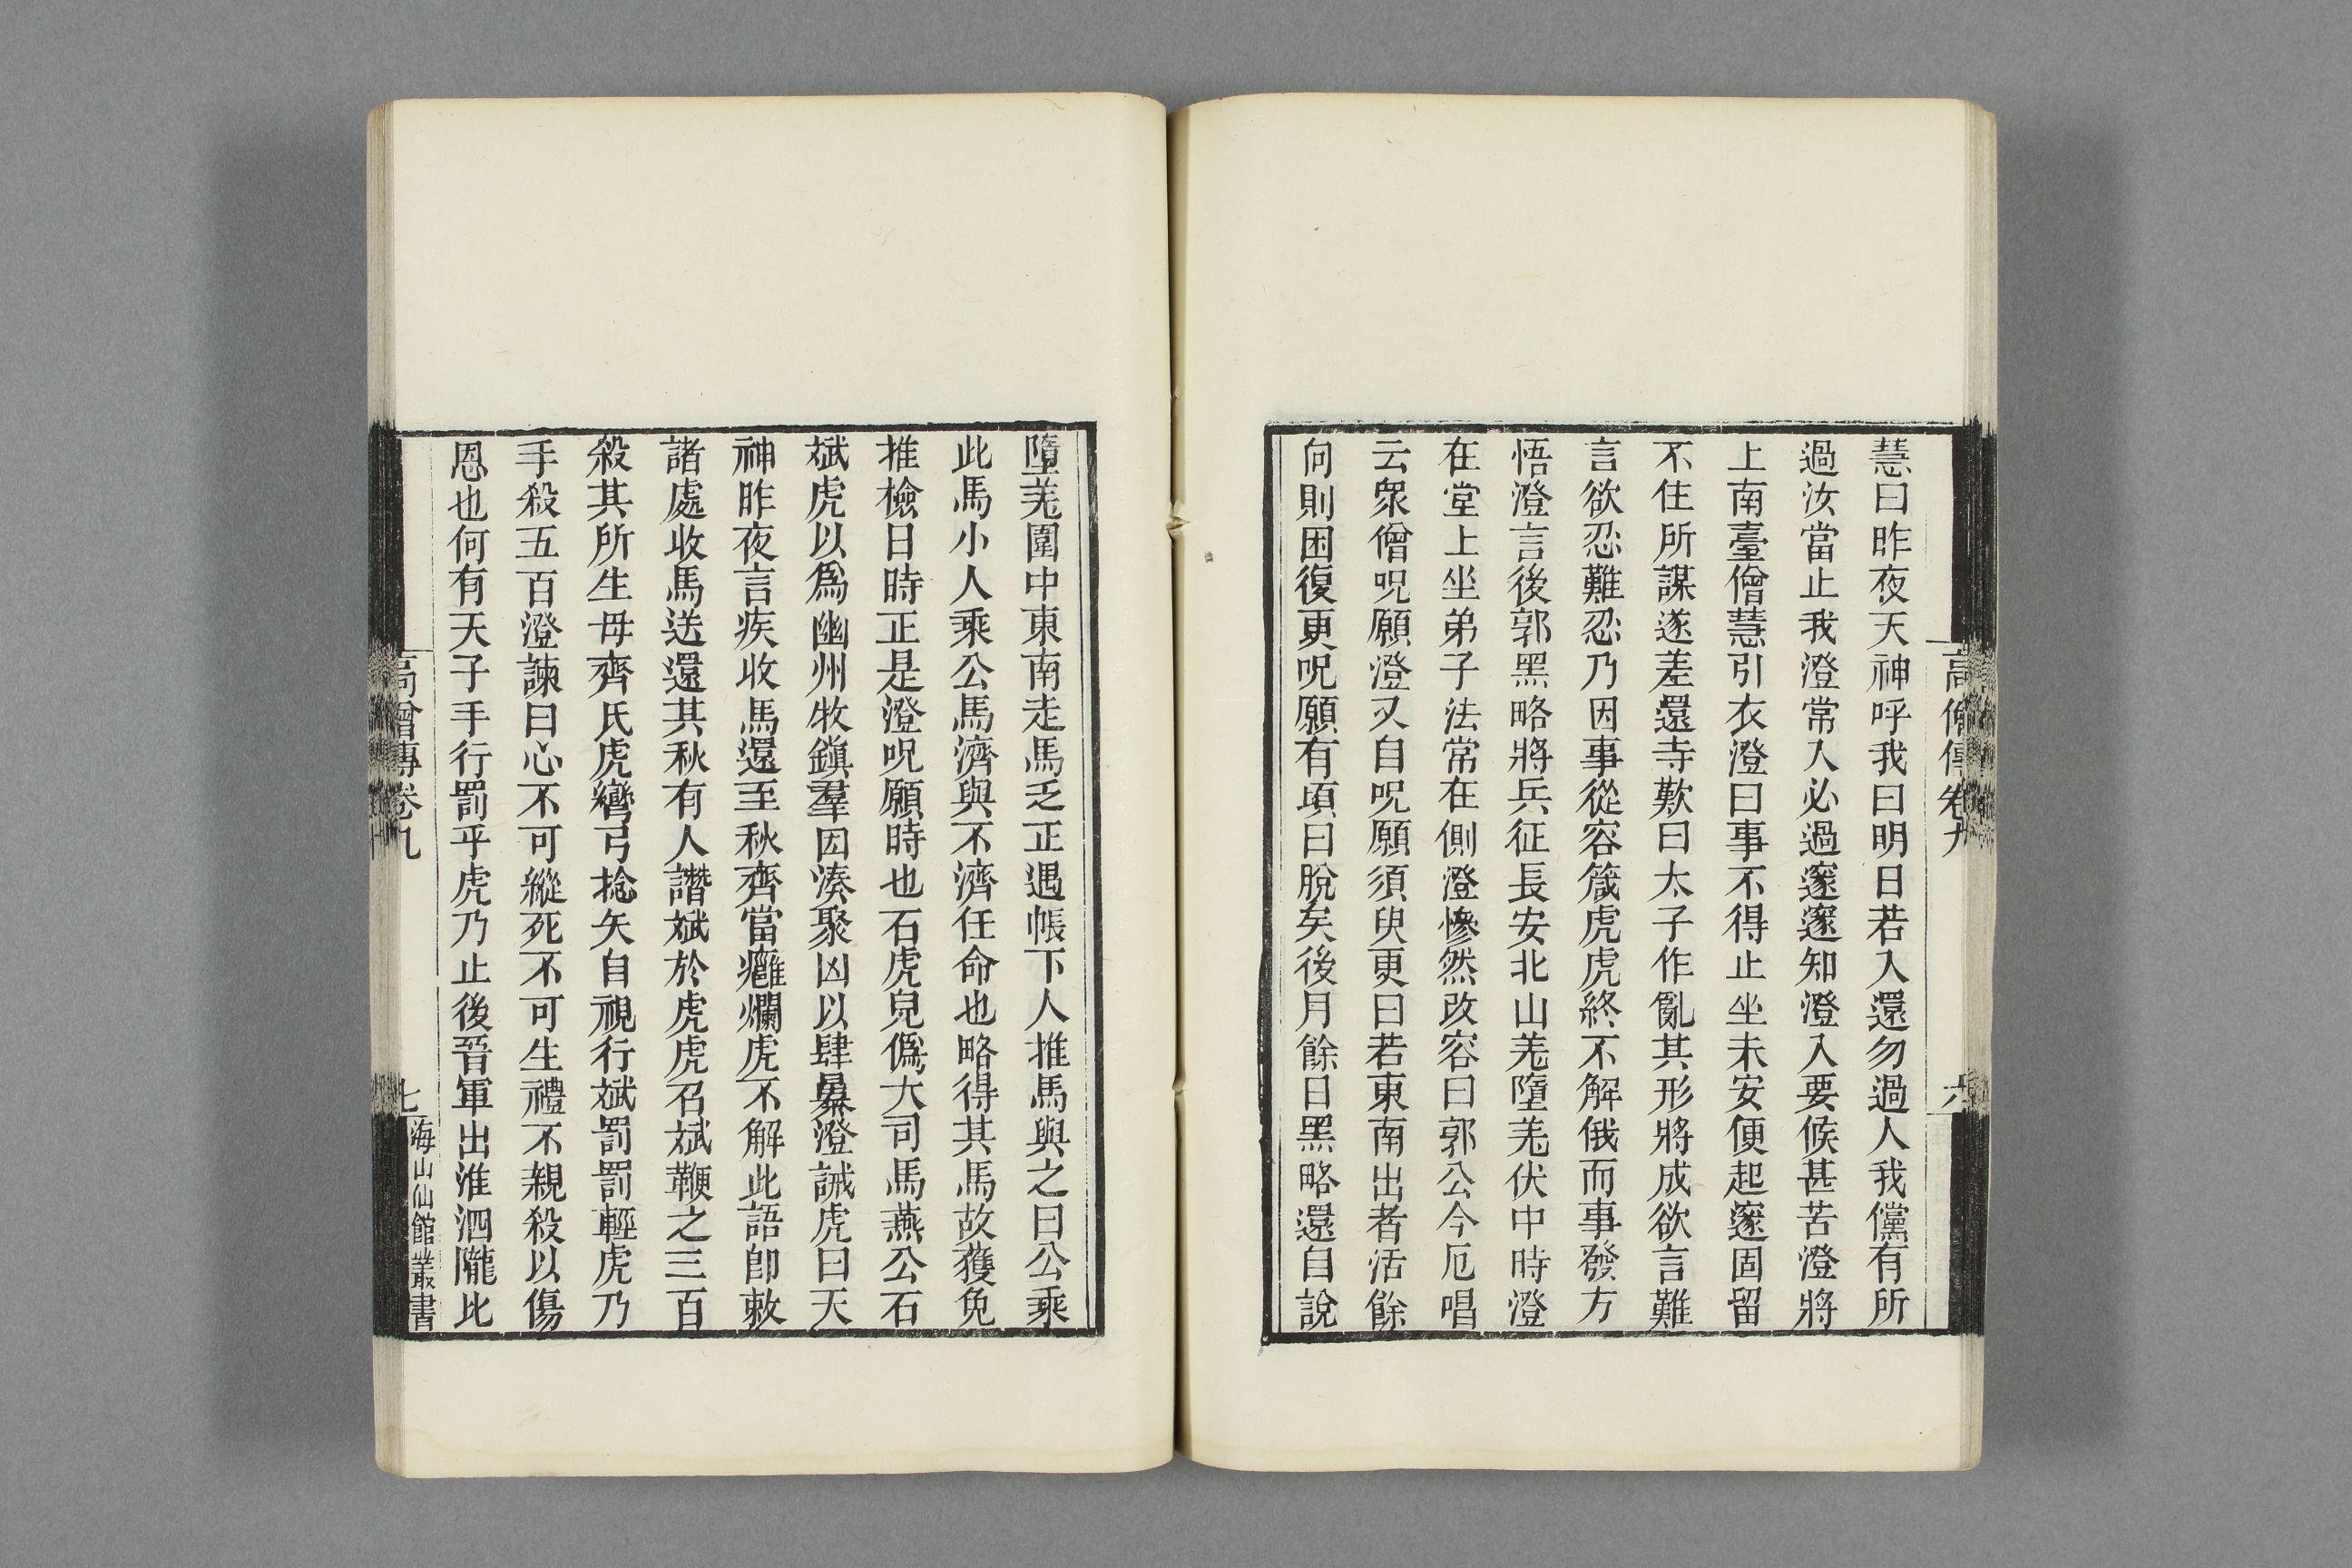 高僧傳卷九
六
慧曰昨夜天神呼我曰明日若入還勿過人我儻有所
過汝當止我澄常入必過邃邃知澄入要候甚苦澄將
上南臺僧慧引衣澄曰事不得止坐未安便起邃固留
不住所謀遂差還寺歎曰太子作亂其形將成欲言難
言欲忍難忍乃因事從容箴虎虎終不解俄而事發方
悟澄言後郭黑略將兵征長安北山羌墮羌伏中時澄
在堂上坐弟子法常在側澄慘然改容曰郭公今厄唱
云衆僧呪願澄又自呪願須臾更曰若東南出者活餘
向則困復更呪願有頃曰脫矣後月餘日黑略還自說
墮羌圍中東南走馬乏正遇帳下人推馬與之曰公乘
此馬小人乘公馬濟與不濟任命也略得其馬故獲免
推檢日時正是澄呪願時也石虎兒僞大司馬燕公石
斌虎以爲幽州牧鎭羣因湊聚凶以肆暴澄誡虎曰天
神昨夜言疾收馬還至秋齊當癰爛虎不解此語卽敕
諸處收馬送還其秋有人譖斌於虎虎召斌鞭之三百
殺其所生母齊氏虎彎弓捻矢自視行斌罰罰輕虎乃
手殺五百澄諫曰心不可縱死不可生禮不親殺以傷
恩也何有天子手行罰乎虎乃止後晉軍出淮泗隴比
高僧傳卷九
七
海山仙館叢書